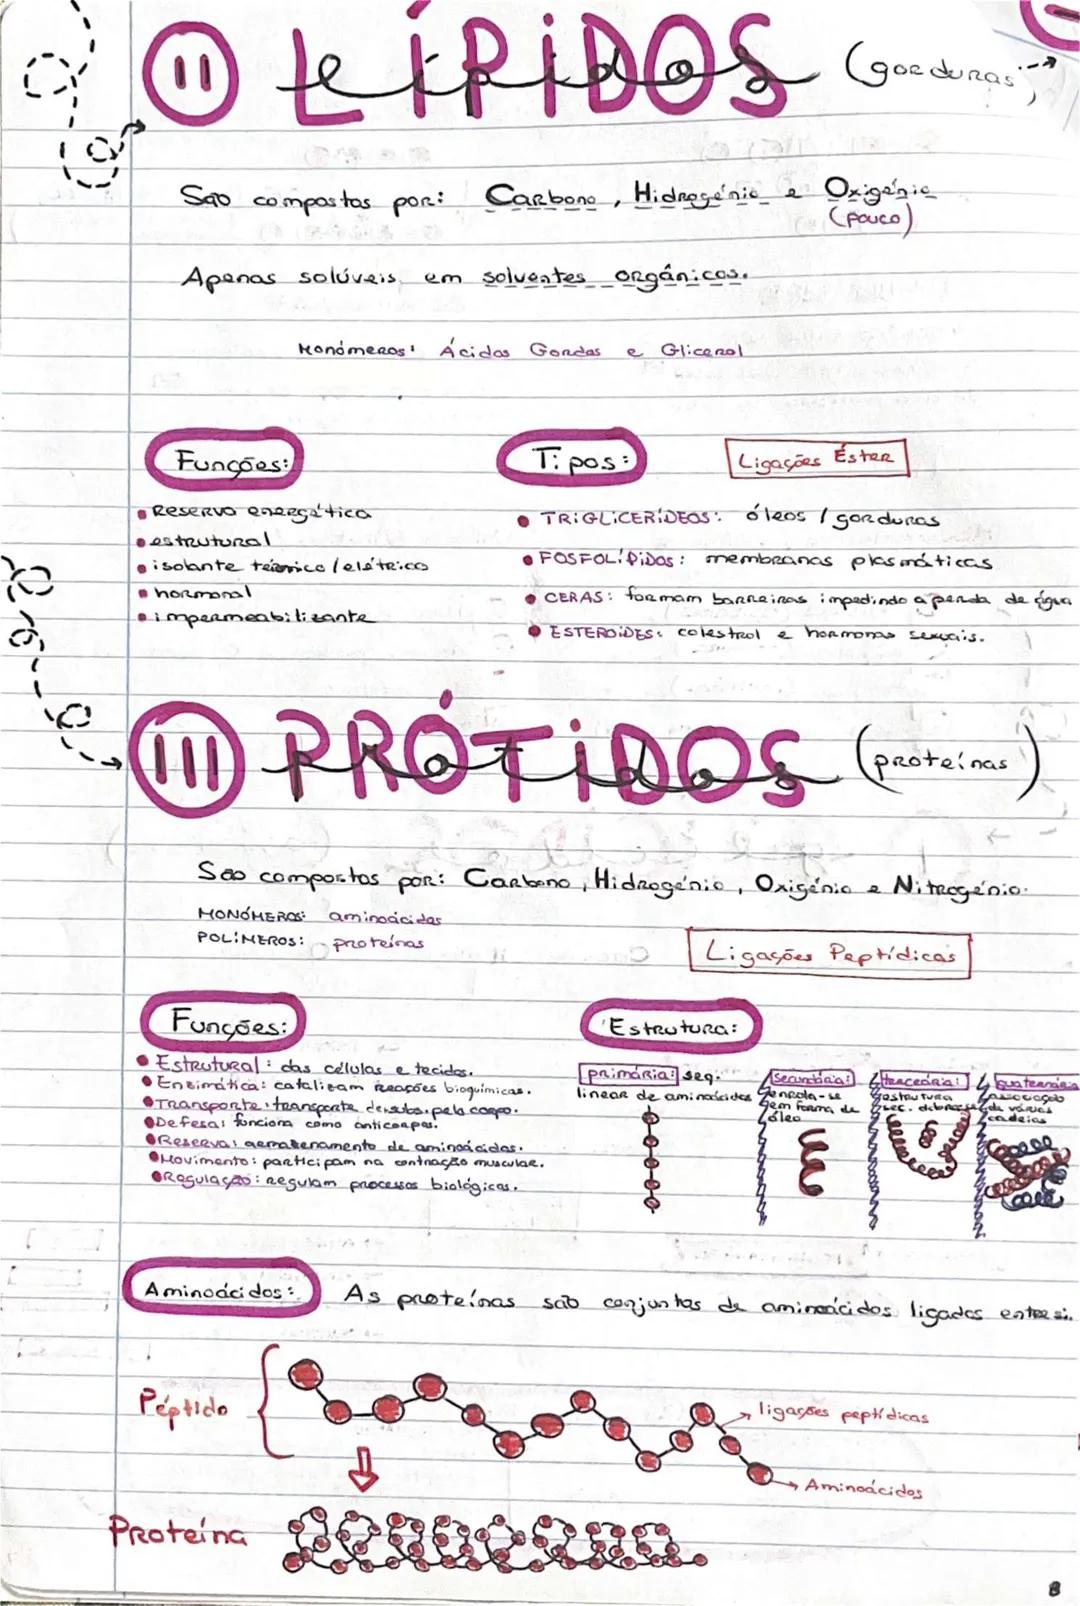 II LÍPIDOS lípidos (gorduras)
São compostos por: Carbono, Hidrogénio e Oxigénio
(pouco)
Apenas solúveis em solventes orgânicos.
Monómeros: Ácidos Gordos e Glicerol
Funções:
Tipos:
Ligações Éster
• Reserva energética
• estrutural
• isolante térmico/elétrico
• hormonal
• impermeabilizante
• TRIGLICERÍDEOS: óleos / gorduras
• FOSFOLÍPIDOS: membranas plasmáticas
• CERAS: formam barreiras impedindo a perda de água
• ESTERÓIDES: colestrol e hormonas sexuais.
III PRÓTIDOS prótidos (proteínas)
São compostos por: Carbono, Hidrogénio, Oxigénio e Nitrogénio.
MONÓMEROS: aminoácidos
POLÍMEROS: proteínas
Ligações Peptídicas
Funções:
• Estrutural: das células e tecidos.
• Enzimática: catalizam reações bioquímicas.
• Transporte: transporte de subs. pelo corpo.
• Defesa: funciona como anticorpos.
• Reserva: armazenamento de aminoácidos.
• Movimento: participam na contração muscular.
• Regulação: regulam processos biológicos.
Estrutura:
primária: seq.
linear de aminoácidos
secundária:
enrola-se
em forma de
óleo
terceária:
estrutura
sec. dobra-se
quaternária
associação
de várias
cadeias
Aminoácidos: As proteínas são conjuntos de aminoácidos ligados entre si.
Péptido
ligações peptídicas
Aminoácidos
Proteína
8